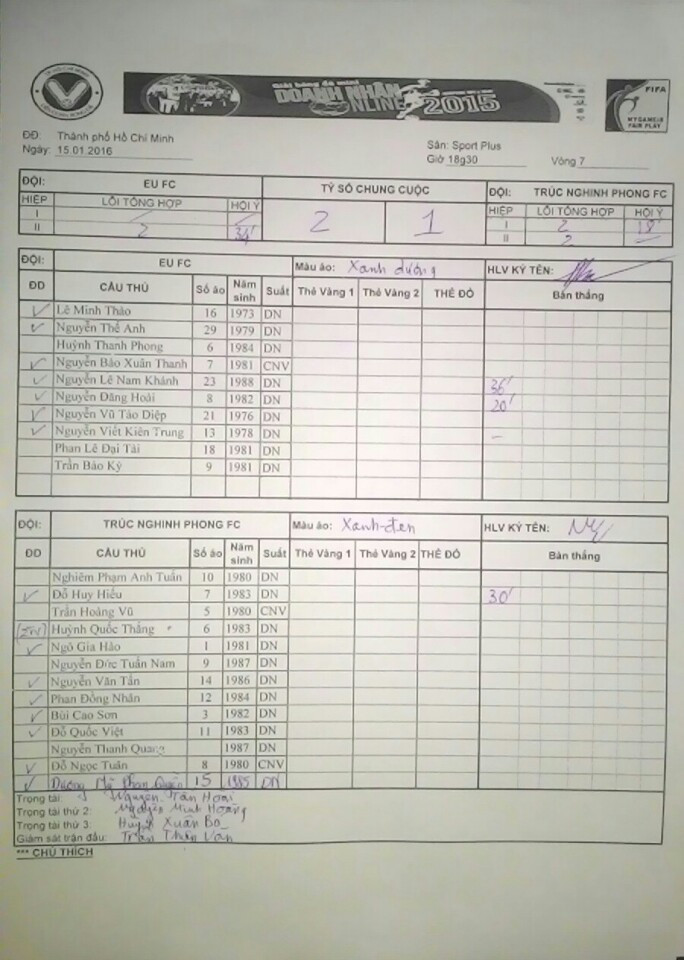 Giải bóng đá mini
DOANH NHÂN
ONLINE 2015
FIFA
MY GAME IS
FAIR PLAY
ĐĐ: Thành phố Hồ Chí Minh
Ngày: 15.01.2016
Sân: Sport Plus
Giờ 18g30 Vòng 7
ĐỘI: EU FC TỶ SỐ CHUNG CUỘC ĐỘI: TRÚC NGHINH PHONG FC
HIỆP LỖI TỔNG HỢP HỘI Ý 2 1 HIỆP LỖI TỔNG HỢP HỘI Ý
I I 2 18'
II 2 34' II 2
ĐỘI: EU FC Màu áo: Xanh dương HLV KÝ TÊN:
ĐD CẦU THỦ Số áo Năm sinh Suất Thẻ Vàng 1 Thẻ Vàng 2 THẺ ĐỎ Bàn thắng
Lê Minh Thảo 16 1973 DN
Nguyễn Thế Anh 29 1979 DN
Huỳnh Thanh Phong 6 1984 DN
Nguyễn Bảo Xuân Thanh 7 1981 CNV
Nguyễn Lê Nam Khánh 23 1988 DN 36'
Nguyễn Đăng Hoài 8 1982 DN 20'
Nguyễn Vũ Tảo Diệp 21 1976 DN
Nguyễn Viết Kiên Trung 13 1978 DN
Phan Lê Đại Tài 18 1981 DN
Trần Bảo Ký 9 1981 DN
ĐỘI: TRÚC NGHINH PHONG FC Màu áo: Xanh-đen HLV KÝ TÊN:
ĐD CẦU THỦ Số áo Năm sinh Suất Thẻ Vàng 1 Thẻ Vàng 2 THẺ ĐỎ Bàn thắng
Nghiêm Phạm Anh Tuấn 10 1980 DN
Đỗ Huy Hiếu 7 1983 DN 30'
Trần Hoàng Vũ 5 1980 CNV
Huỳnh Quốc Thắng 6 1983 DN
Ngô Gia Hào 1 1981 DN
Nguyễn Đức Tuấn Nam 9 1987 DN
Nguyễn Văn Tấn 14 1986 DN
Phan Đồng Nhân 12 1984 DN
Bùi Cao Sơn 3 1982 DN
Đỗ Quốc Việt 11 1983 DN
Nguyễn Thanh Quang 1987 DN
Đỗ Ngọc Tuân 8 1980 CNV
Dương 15 1985 DN
Trọng tài: Nguyễn Tấn Hoài
Trọng tài thứ 2: Nguyễn Minh Hoàng
Trọng tài thứ 3: Huỳnh Xuân
Giám sát trận đấu: Trần Thân Van
*** CHÚ THÍCH